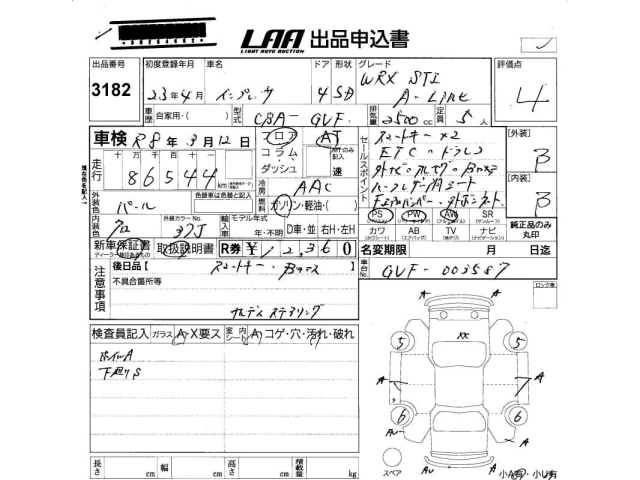 LAA 出品申込書
LIGHT AUTO AUCTION
出品番号 初度登録年月 車名 ドア 形状 グレード 評価点
3182 23年4月 インプレッサ 4 SD WRX STI A-Line 4
車歴 自家用・( ) 型式 CBA-GVF 排気量 2500cc 定員 5人
車検 R8年3月12日 フロア AT セールスポイント スマートキー×2 [外装] B
走行 十万 万 千 百 十 コラム ETC・ドラレコ
86544 km ダッシュ 速
冷房 AAC ハーフレザー内シート [内装] B
外装色 パール 色替車は色替と記入 燃料 ガソリン・軽油・( )
内装色 クロ 外装カラーNo. 37J 輸入車 モデル年式 年・不明 D車・並 右H・左H
PS PW AW SR
カワ AB TV ナビ 純正品のみ丸印
新車保証書 取扱説明書 R券 ¥12,360 名変期限 月 日迄
注意事項 後日品【 スマートキー・
不具合箇所等
車台No. GVF-003587
ロック車
検査員記入 ガラス A・X要ス 室内シート A・コゲ・穴・汚れ・破れ
ホイルA
下廻りS
A A
5 XX 5
A A
6 6
A
A A
スペア
長さ cm 幅 cm 高さ cm 積載量 kg
小A有・小U有